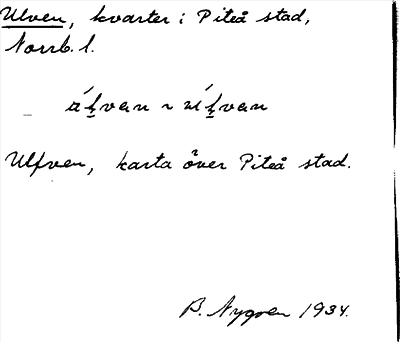 Ulven, kvarter i Piteå stad,
Norrb. l.
Ulfven, karta över Piteå stad.
B. Nygren 1934.